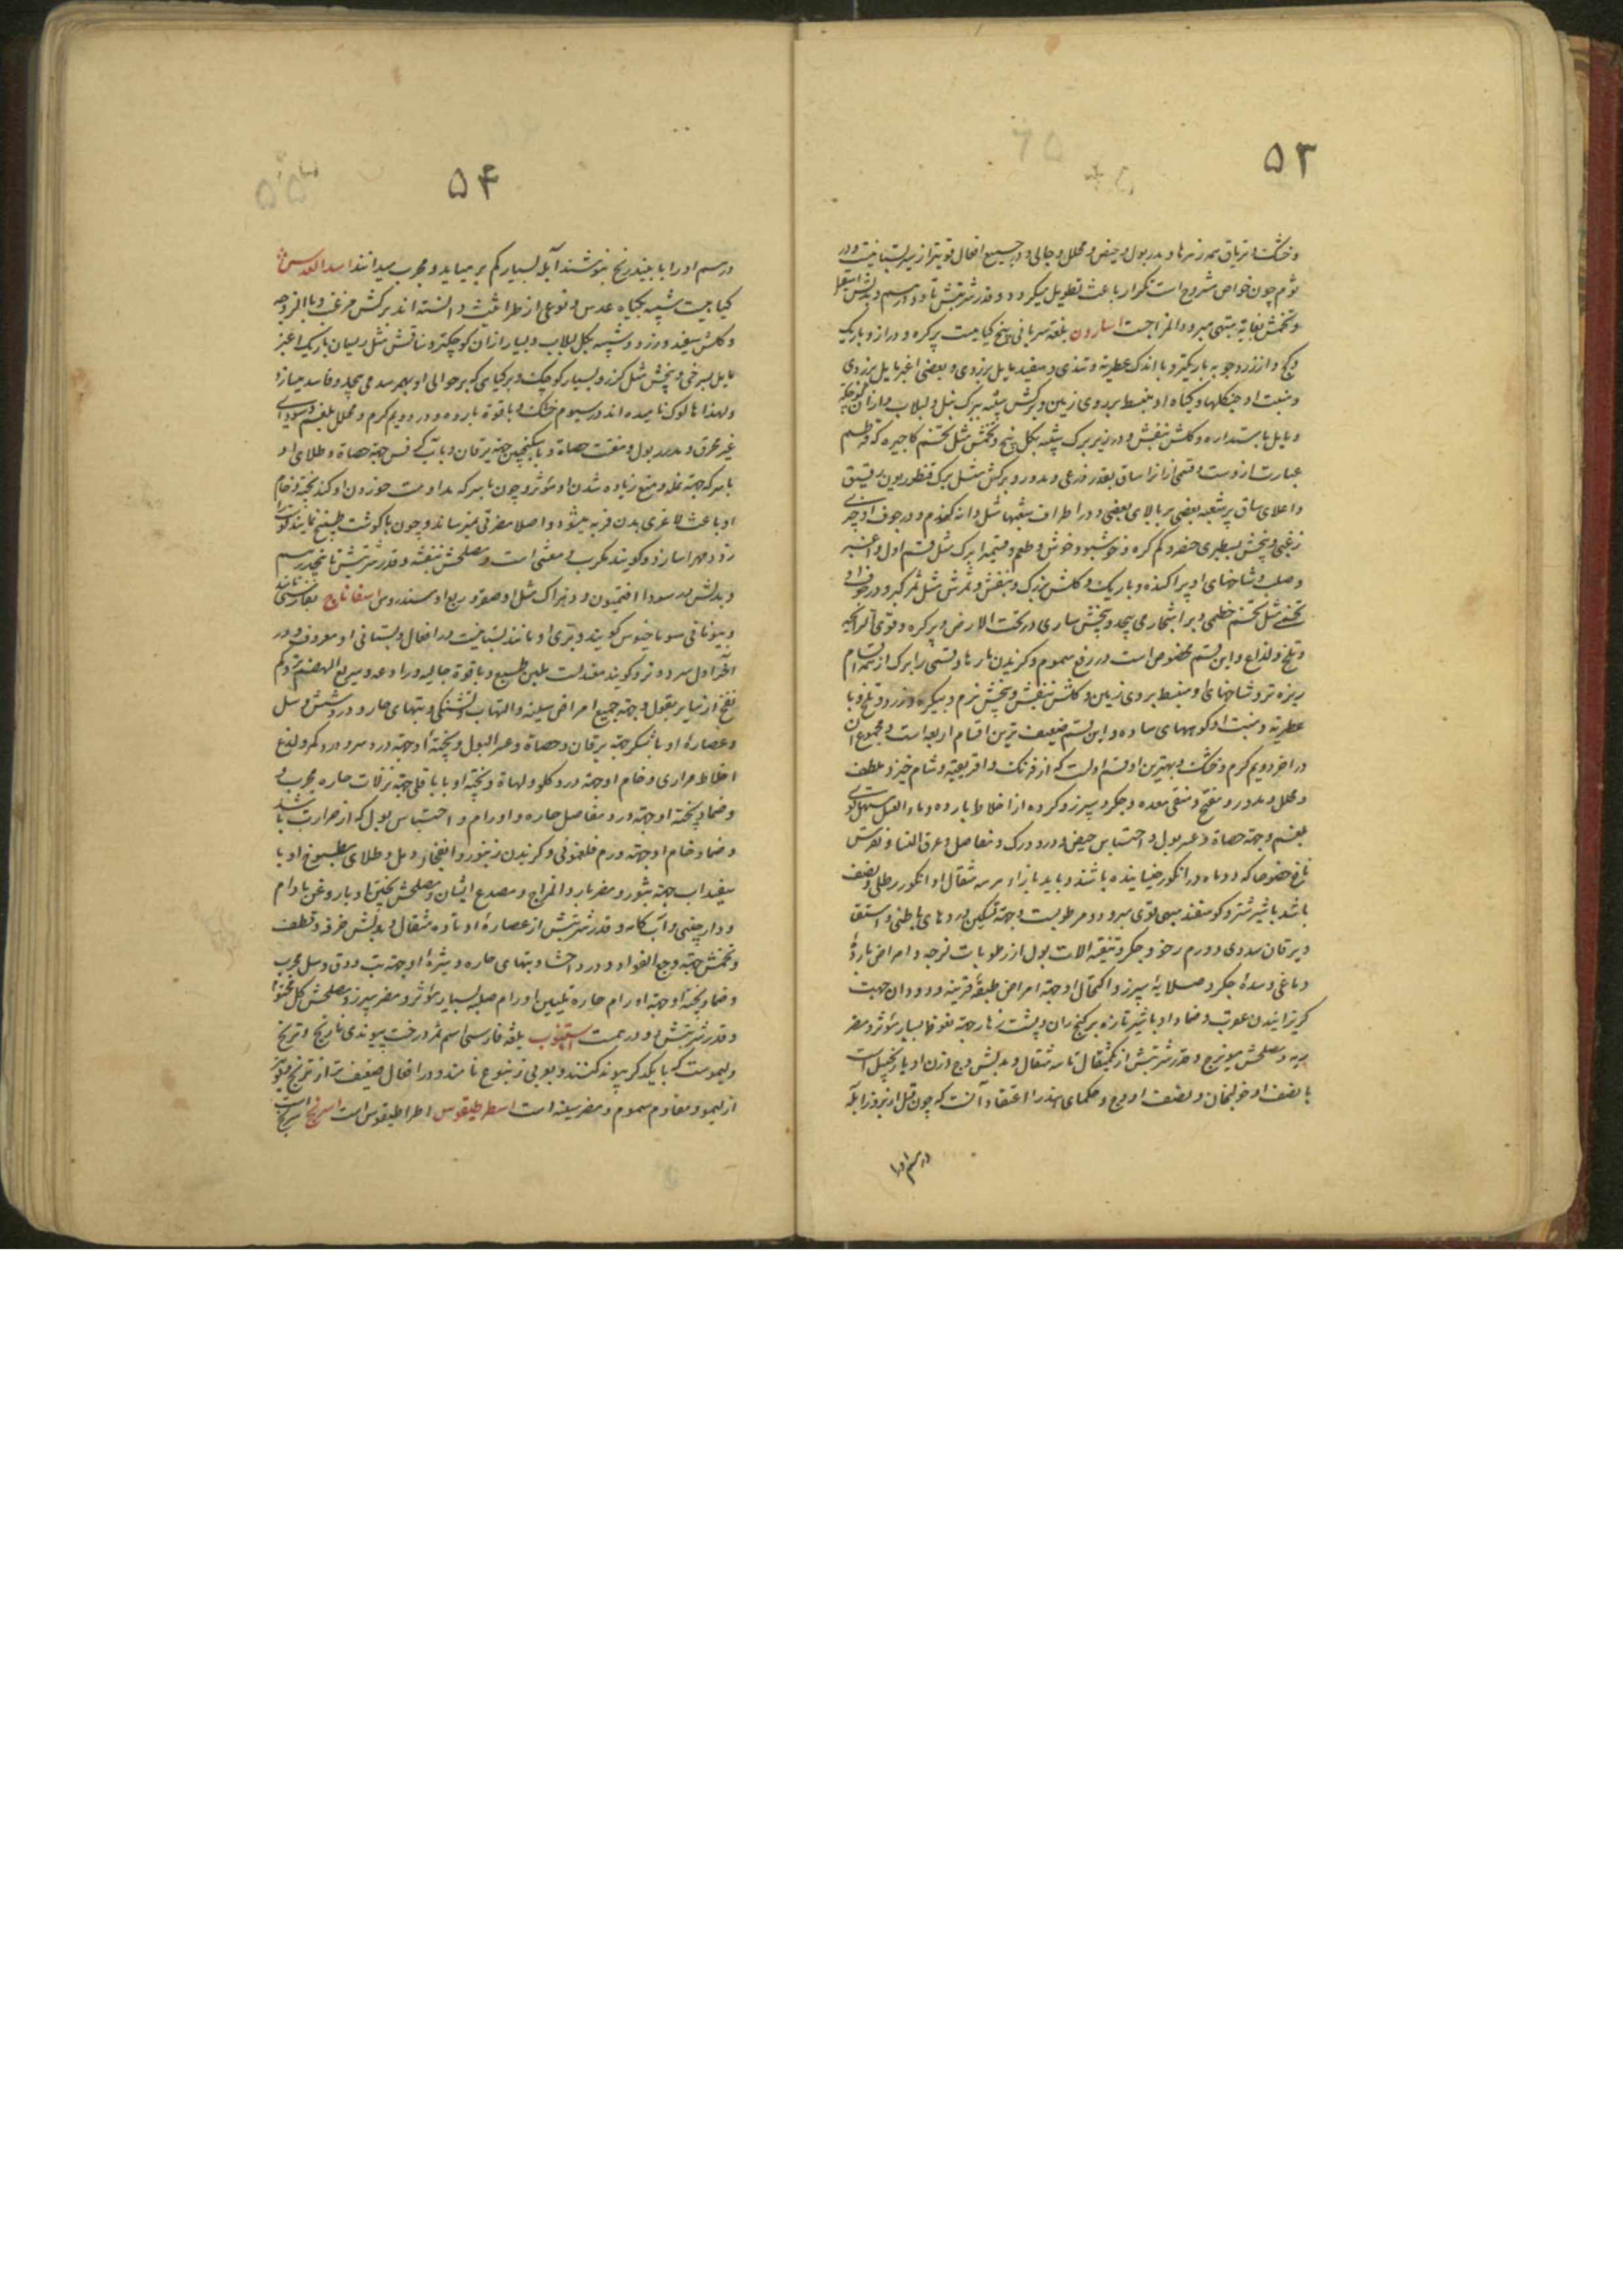 ۵۳
و خشک و تریاق همه زهرها و مدر بول و حیض و محلل و جالی و در جمیع افعال قویتر از سیر بستانیست و در
ثوم چون خواص مشروح است تکرار باعث تطویل میگردد و قدر شربتش تا دو درهم و بدلش اسقیل
و تخمش بغایة مبهی مبرود المزاجست اسارون بلغة سریانی بیخ گیاهیست پر گره و دراز و باریک
و کج و از زردچوبه باریکتر و با اندک عطریة و تندی و سفید مایل بزردی و بعضی اغبر مایل بزردی
و منبت او جنگلها و گیاه او منبسط بر روی زمین و برگش شبیه ببرگ نیل و لبلاب و از آن کوچکتر
و مایل باستداره و گلش بنفش و در زیر برگ شبیه بگل بنج و تخمش مثل تخم کاجیره که قرطم
عبارت ازوست و قسمی از آنرا ساق بقدر ذرعی و مدور و برگش مثل برگ قنطوریون دقیق
و اعلای ساق پر شعبه بعضی بر بالای بعضی و در اطراف شعبها مثل دانه گندم و در جوف او چیزی
زغبی و بیخش بسطبری خنصر و کم گره و خوشبو و خوش طعم و قسمیرا برگ مثل قسم اول و اغبر
و صلب و شاخهای او پراکنده و باریک و گلش بزرگ و بنفش و ثمرش مثل ثمر کبر و در جوف او
تخمی مثل تخم خطمی و بر اشجار می پیچد و بیخش ساری در تحت الارض و پر گره و قوی الرایحه
و تلخ و لذاع و این قسم مخصوص است در رفع سموم و گزیدن مارها و قسمی را برگ از همه اقسام
ریزه تر و شاخهای او منبسط بر روی زمین و گلش بنفش و بیخش نرم و بیگره و زرد و تلخ و با
عطریة و منبت او کوههای ساده و این قسم ضعیف ترین اقسام اربعه است و مجموع آن
در آخر دویم گرم و خشک و بهترین او قسم اولست که از فرنگ و افریقیه و شام خیزد ملطف
و محلل و مدر و مفتح و منقی معده و جگر و سپرز و گرده از اخلاط بارده و با ماء العسل مسهل قوی
بلغم و جهة حصاة و عسر بول و احتباس حیض و درد ورک و مفاصل و عرق النسا و نقرس
نافع خصوصا که دو ماه در انگور خیسانیده باشند و باید بازاء هر سه مثقال او انگور رطلی و نصف
باشد با شیر شتر و گوسفند مبهی قوی مبرود و مرطوبست و جهة تسکین دردهای باطنی و استسقا
و یرقان سددی و ورم رخو و جگر و تنقیه آلات بول از رطوبات لزجه و امراض بارده
دماغی و سده جگر و صلابة سپرز و اکتحال او جهة امراض طبقه قرنیه و دود آن جهت
گریزانیدن عقرب و ضماد او با شیر تازه بر کنج ران و پشت زهار جهة نعوظ بسیار مؤثر و مضر
ریه و مصلحش مویزج و قدر شربتش از یکمثقال تا سه مثقال و بدلش وج و وزن او یا زنجبیل است
با نصف او خولنجان و نصف او وج و حکمای هند را اعتقاد آنست که چون قبل از بروز آبله
درهم او را
۵۴
درهم او را با بیندریخ بنوشند آبله بسیار کم بر میآید و مجرب میدانند اسد العدس
گیاهیست شبیه بگیاه عدس و نوعی از طراثیث دانسته اند برگش مزغب و با لزوجه
و گلش سفید و زرد و شبیه بگل لبلاب و بسیار از آن کوچکتر و ساقش مثل ریسمان باریک اغبر
مایل بسرخی و بیخش مثل گزر و بسیار کوچک و بر گیاهی که بر حوالی او بهم رسد می پیچد و فاسد میسازد
و لهذا هالوک نامیده اند در سیوم خشک و با قوة بارده و در دویم گرم و محلل بلغم و سودای
غیر محرق و مدر بول و مفتت حصاة و با سکنجبین جهة یرقان و با آب کرفس جهة حصاة و طلای او
با سرکه جهة نمله و منع زیاده شدن او مؤثر و چون با سرکه مداومت خوردن او کنند پخته و خام
او باعث لاغری بدن فربه میشود و اصلا مضرتی نمیرساند و چون با گوشت طبخ نمایند گوشت را
زود مهرا سازد و گویند مکرب و مغثی است و مصلحش بنفشه و قدر شربتش تا پنجدرهم
و بدلش در سودا افتیمون و در هزال مثل او صعتر و ربع او سندروس اسفاناج بفارسی
و بیونانی سوباخیوس گویند و بری او مانند بستانیست در افعال و بستانی او معروف و در
آخر اول سرد و تر و گویند معتدلست ملین طبع و با قوة جالیه و رادعه و سریع الهضم تر و کم
نفخ از سایر بقول و جهة جمیع امراض سینه و التهاب و تشنگی و تبهای حار و درد شش و سل
و عصاره او با شکر جهة یرقان و حصاة و عسر البول و پخته او جهة درد سر و درد کمر و لذع
اخلاط مراری و خام او جهة درد گلو و لهاة و پخته او با باقلی جهة نزلات حاره مجرب و
و ضماد پخته او جهة درد مفاصل حاره و اورام و احتباس بول که از حرارت باشد
و ضماد خام او جهة ورم فلغمونی و گزیدن زنبور و انفجار دمل و طلای مطبوخ او با
سفیداب جهة بثور و مضر بارد المزاج و مصدع ایشان و مصلحش پختن او با روغن بادام
و دارچینی و آب کامه و قدر شربتش از عصاره او تا ده مثقال و بدلش خرفه و قطف
و تخمش جهة وجع الفواد و درد احشا و تبهای حاره و بیثره او جهة تب دق و سل مجرب
و ضماد پخته او جهة اورام حاره و تلیین اورام صلبه بسیار مؤثر و مضر سپرز و مصلحش گل مختوم
و قدر شربتش دو درهمست استنبوب بلغة فارسی اسم ثمر درخت پیوندی نارنج و ترنج
و لیموست که با یکدگر پیوند کنند و بعربی زنبوع نامند و در افعال ضعیف تر از ترنج و قویتر
از لیمو و مقاوم سموم و مضر سینه است اسطراطیقوس اطراطیقوس است اسرنج سرنج است